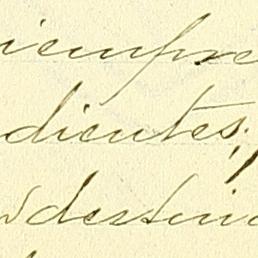 iempre
dientes;
destin